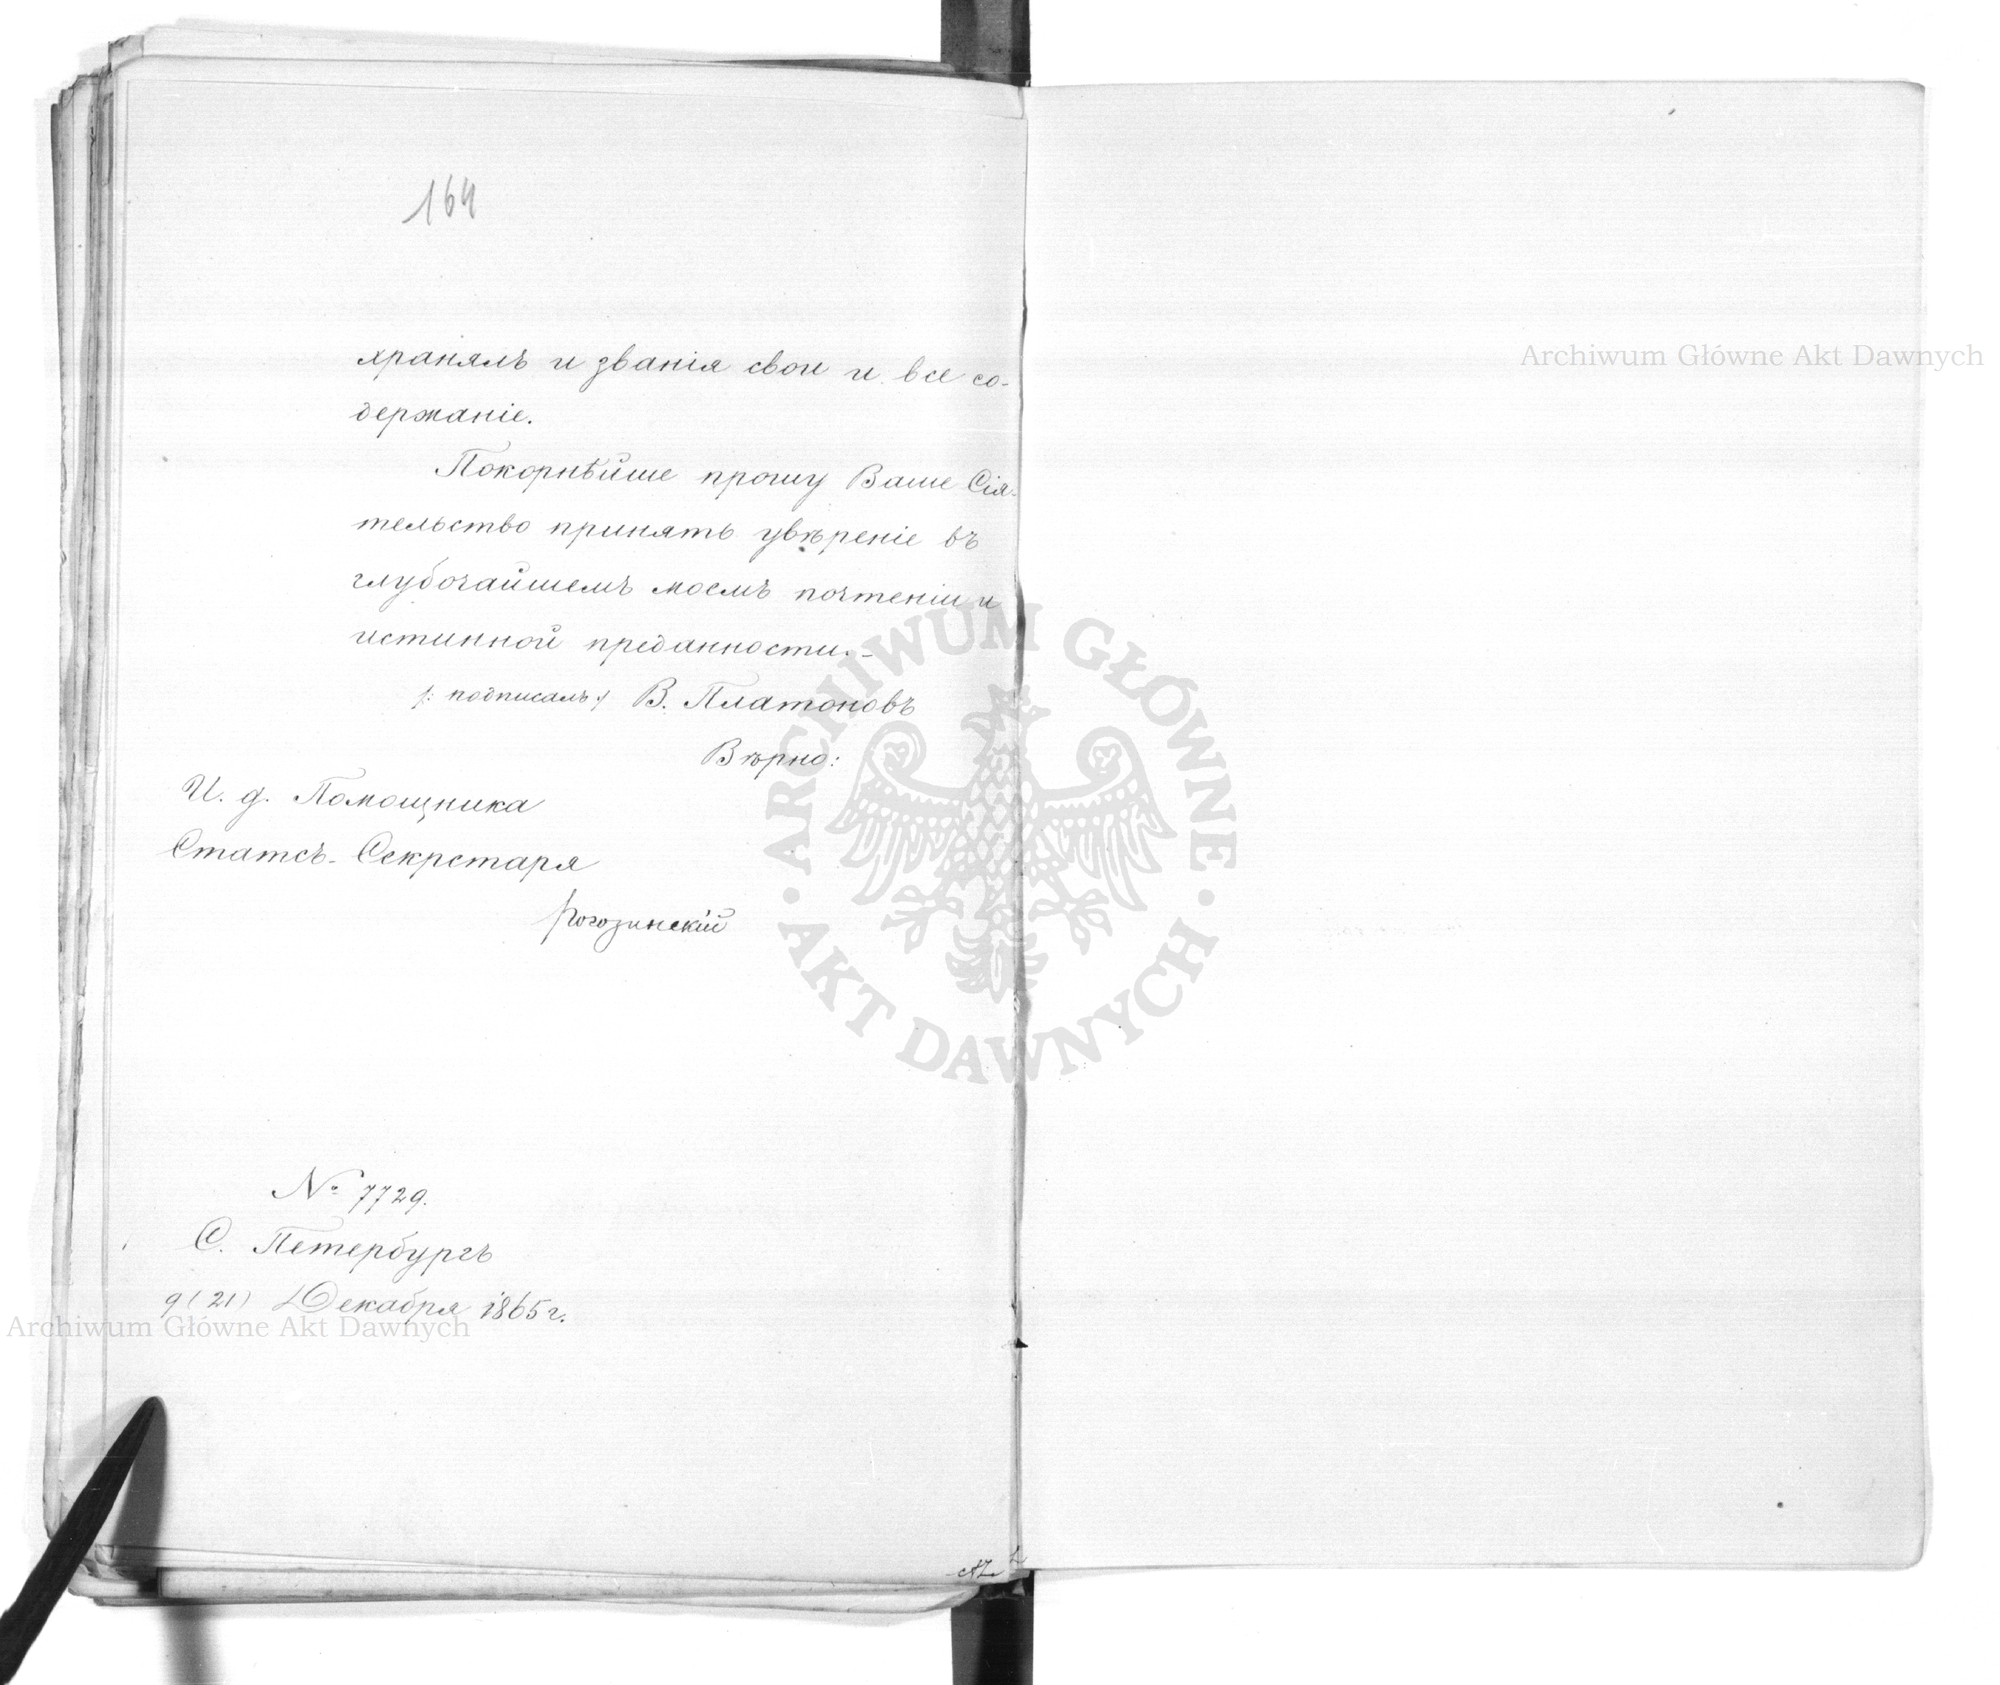 164
хранялъ и званія свои и все со-
держаніе.
Покорнѣйше прошу Ваше Сія-
тельство принять увѣреніе въ
глубочайшемъ моемъ почтеніи и
истинной преданности.-
/: подписалъ :/ В. Платоновъ
Вѣрно:
И. д. Помощника
Статсъ-Секретаря
Рогозинскій
№ 7729.
С. Петербургъ
9 (21) Декабря 1865 г.
Archiwum Główne Akt Dawnych
Archiwum Główne Akt Dawnych
ARCHIWUM GŁÓWNE
AKT DAWNYCH